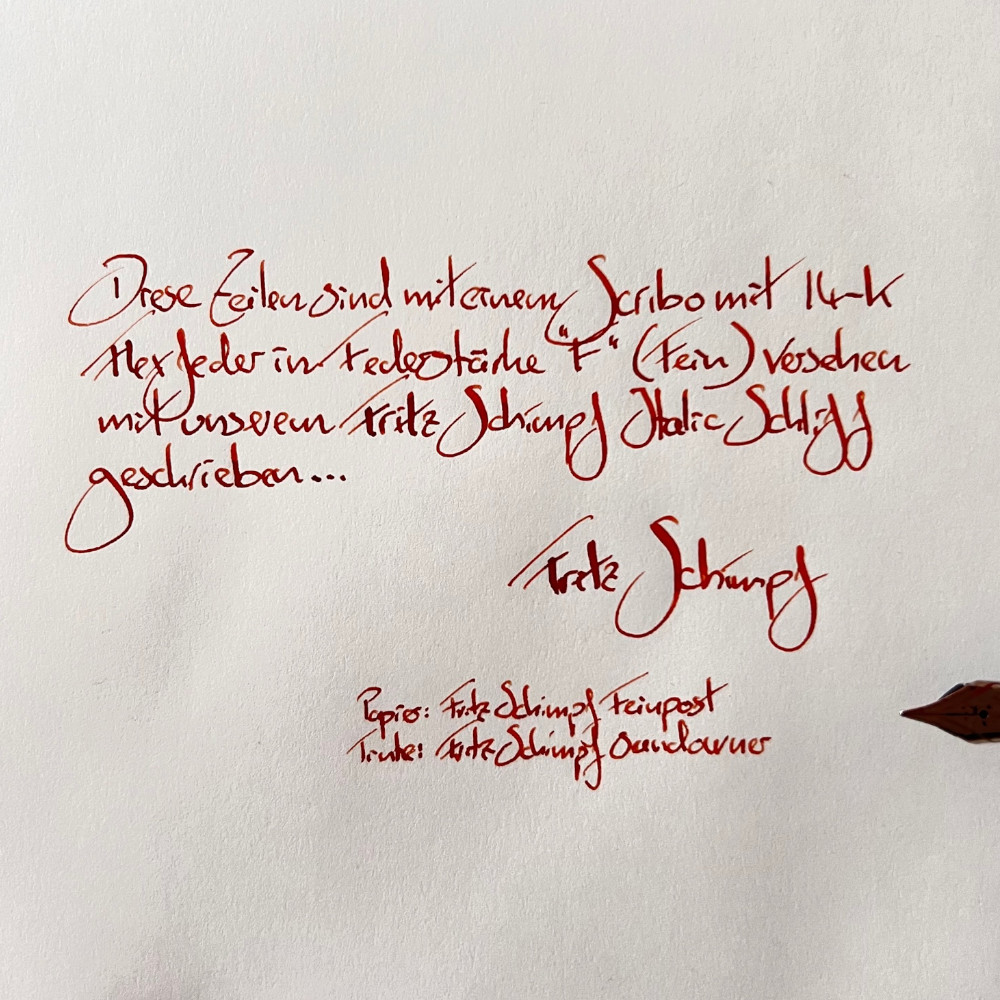 Diese Zeilen sind mit einem Scribo mit 14-K
Flex Feder in Federstärke "F" (Fein) versehen
mit unserem Fritz Schimpf Italic Schliff
geschrieben...
Fritz Schimpf
Papier: Fritz Schimpf Feinpost
Tinte: Fritz Schimpf Sundowner